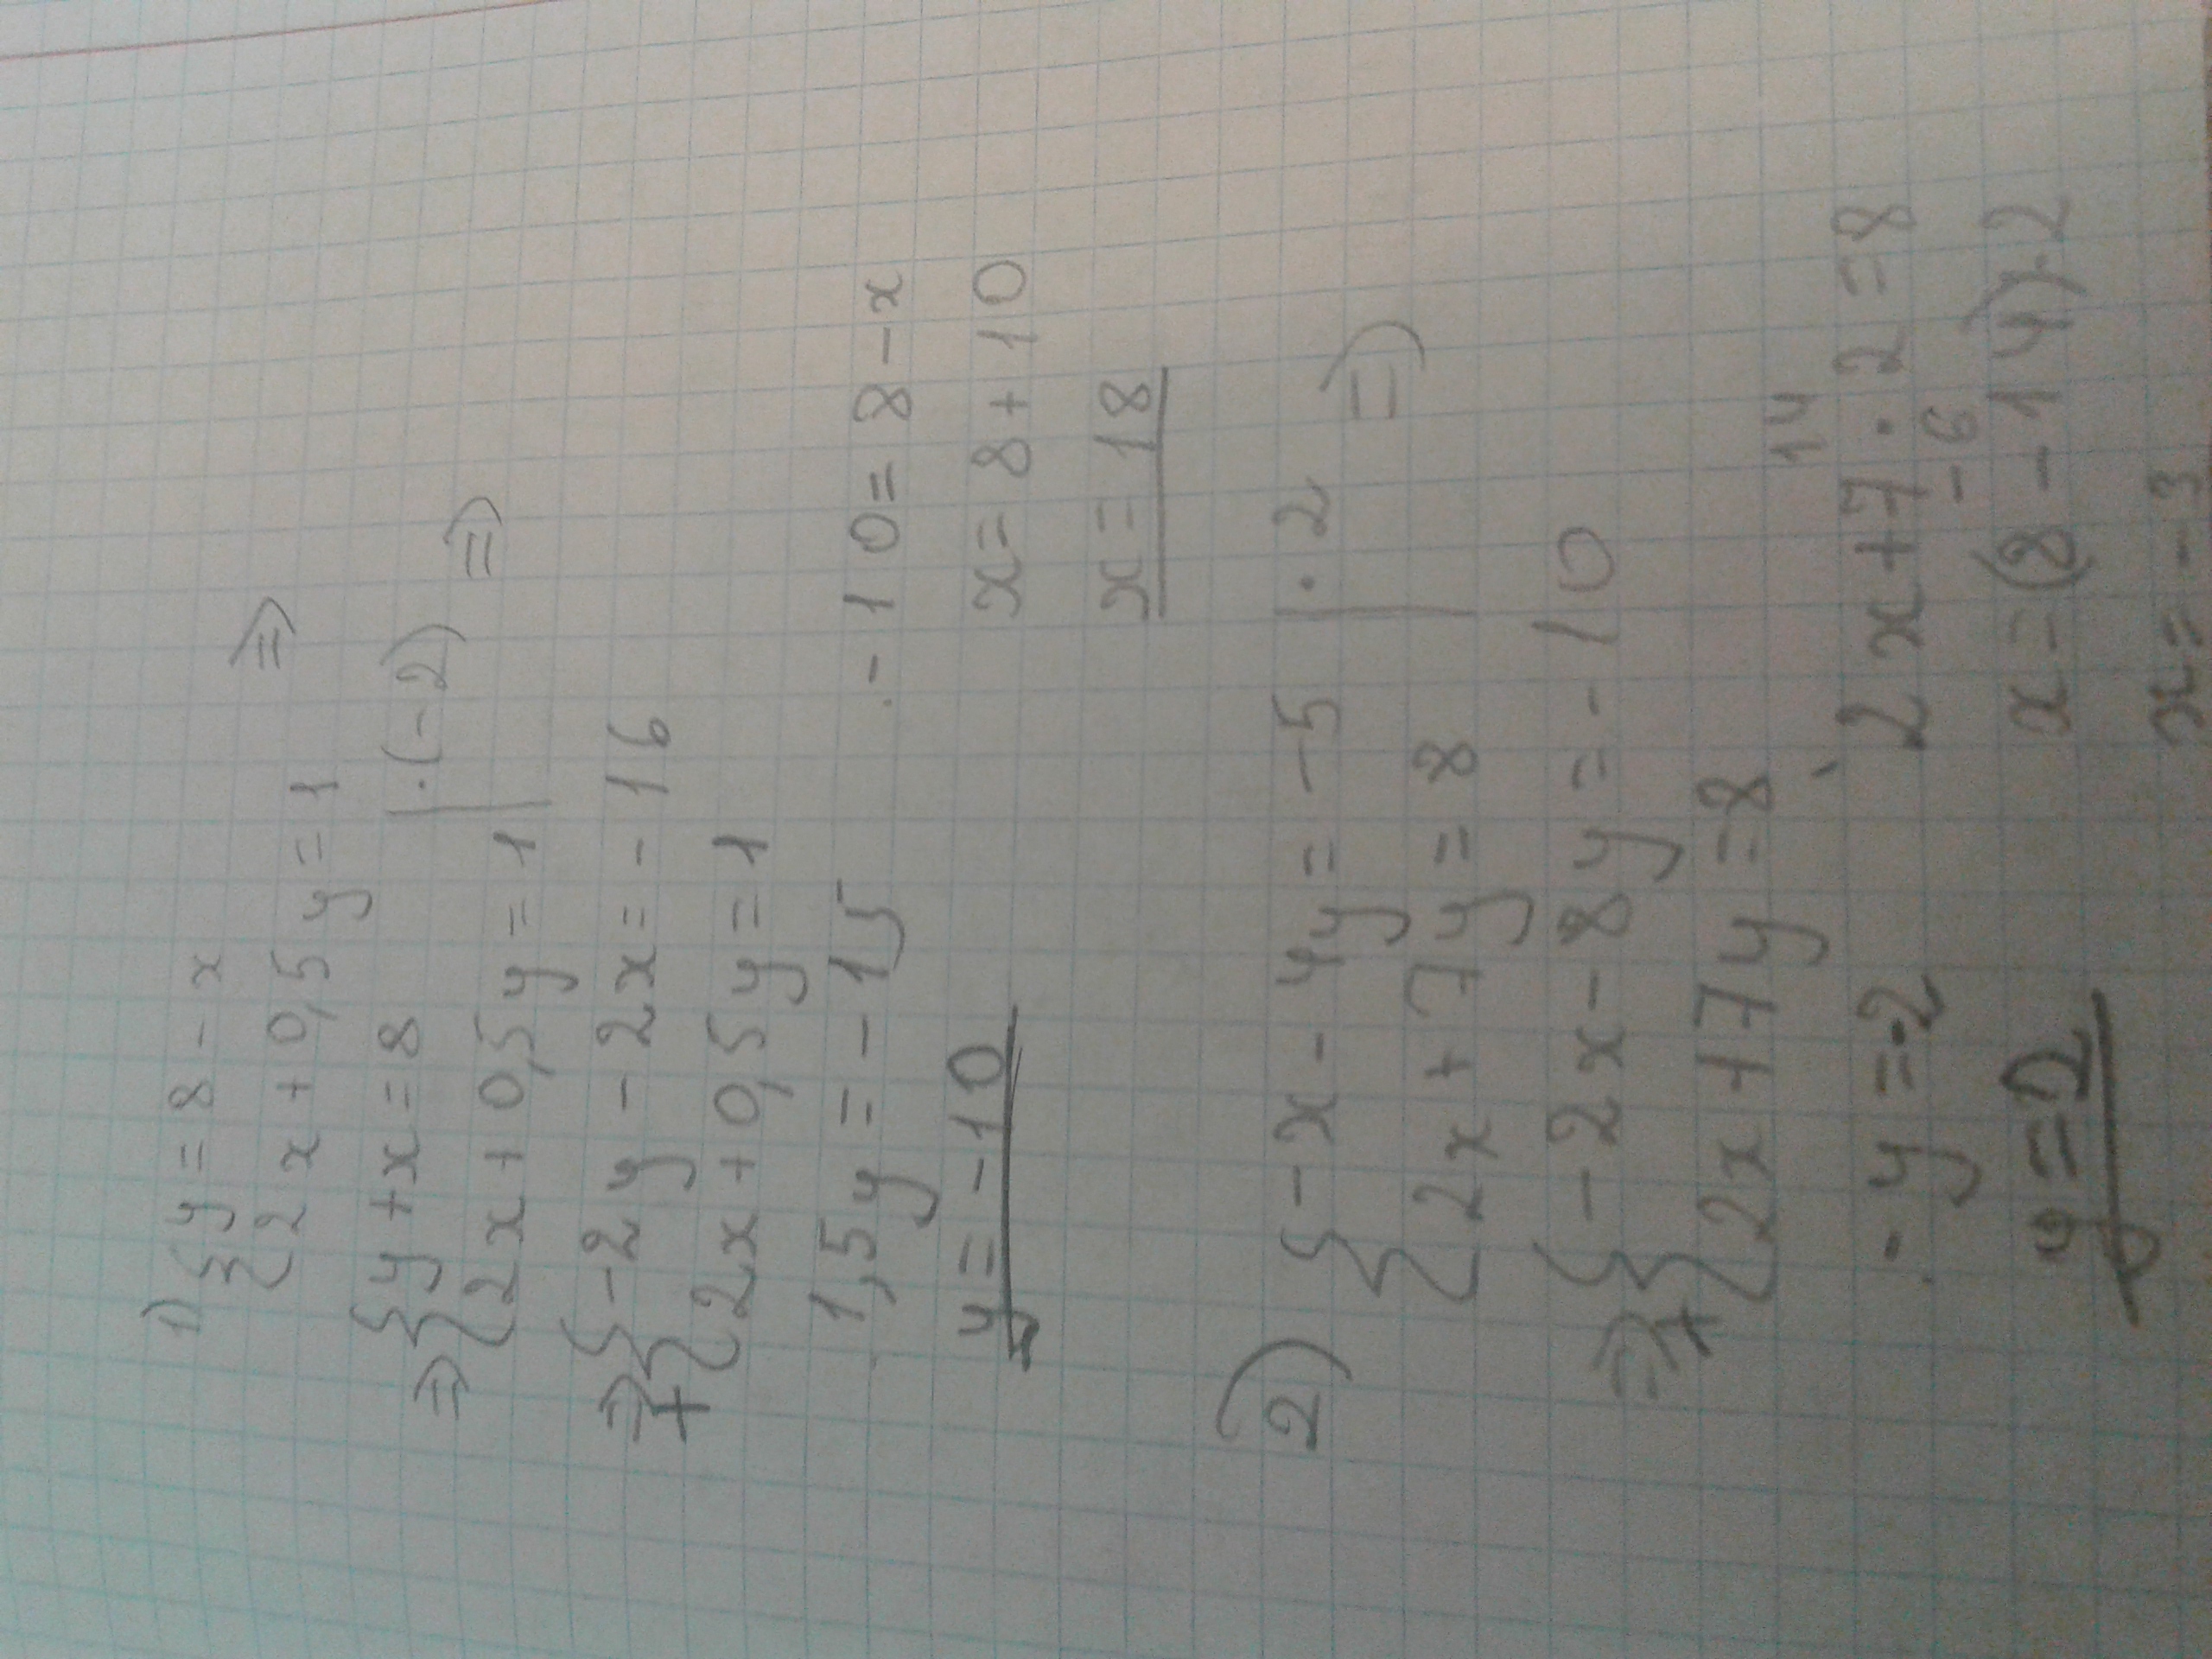 1) { y = 8 - x
2x + 0,5y = 1 ⇒
⇒ { y + x = 8 | · (-2)
2x + 0,5y = 1 | ⇒
⇒ + { -2y - 2x = -16
2x + 0,5y = 1
1,5y = -15
y = -10
-10 = 8 - x
x = 8 + 10
x = 18
2) { -x - 4y = -5 | · 2
2x + 7y = 8 | ⇒
⇒ + { -2x - 8y = -10
2x + 7y = 8
-y = -2
y = 2
14
2x + 7 · 2 = 8
-6
x = (8 - 14) : 2
x = -3